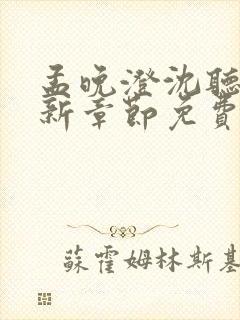 孟晚澄沈聽
新章節免費
蘇霍姆林斯基